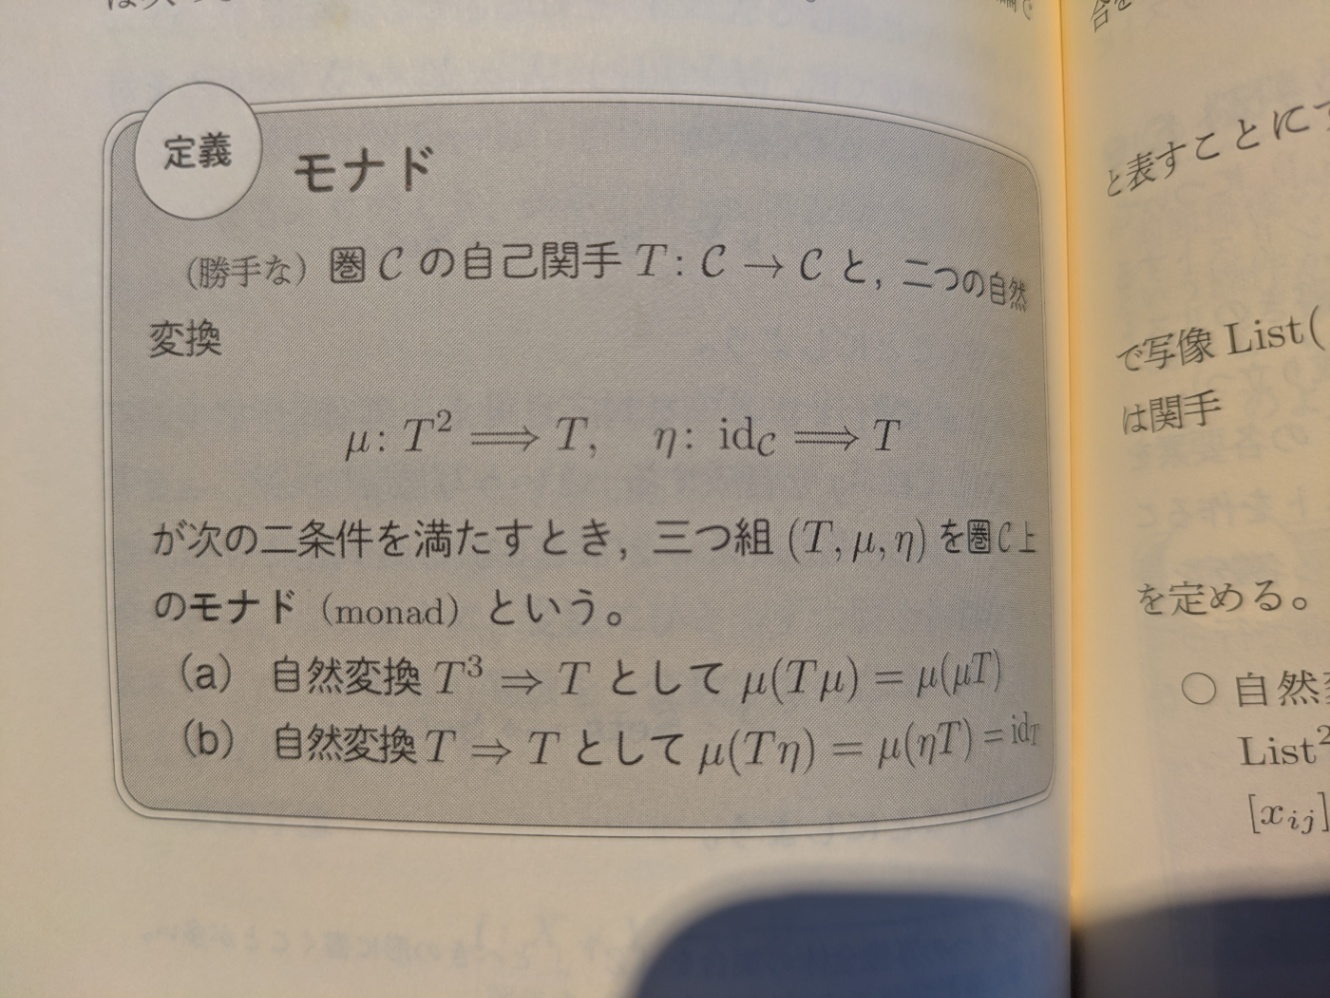 定義
モナド
（勝手な）圏 𝒞 の自己関手 T: 𝒞 → 𝒞 と，二つの自然
変換
μ: T² ⟹ T,　η: id𝒞 ⟹ T
が次の二条件を満たすとき，三つ組 (T, μ, η) を圏 𝒞 上
のモナド（monad）という。
(a)　自然変換 T³ ⇒ T として μ(Tμ) = μ(μT)
(b)　自然変換 T ⇒ T として μ(Tη) = μ(ηT) = id_T
と表すことに
で写像 List(
は関手
を定める。
○ 自然
List²
[x_ij]